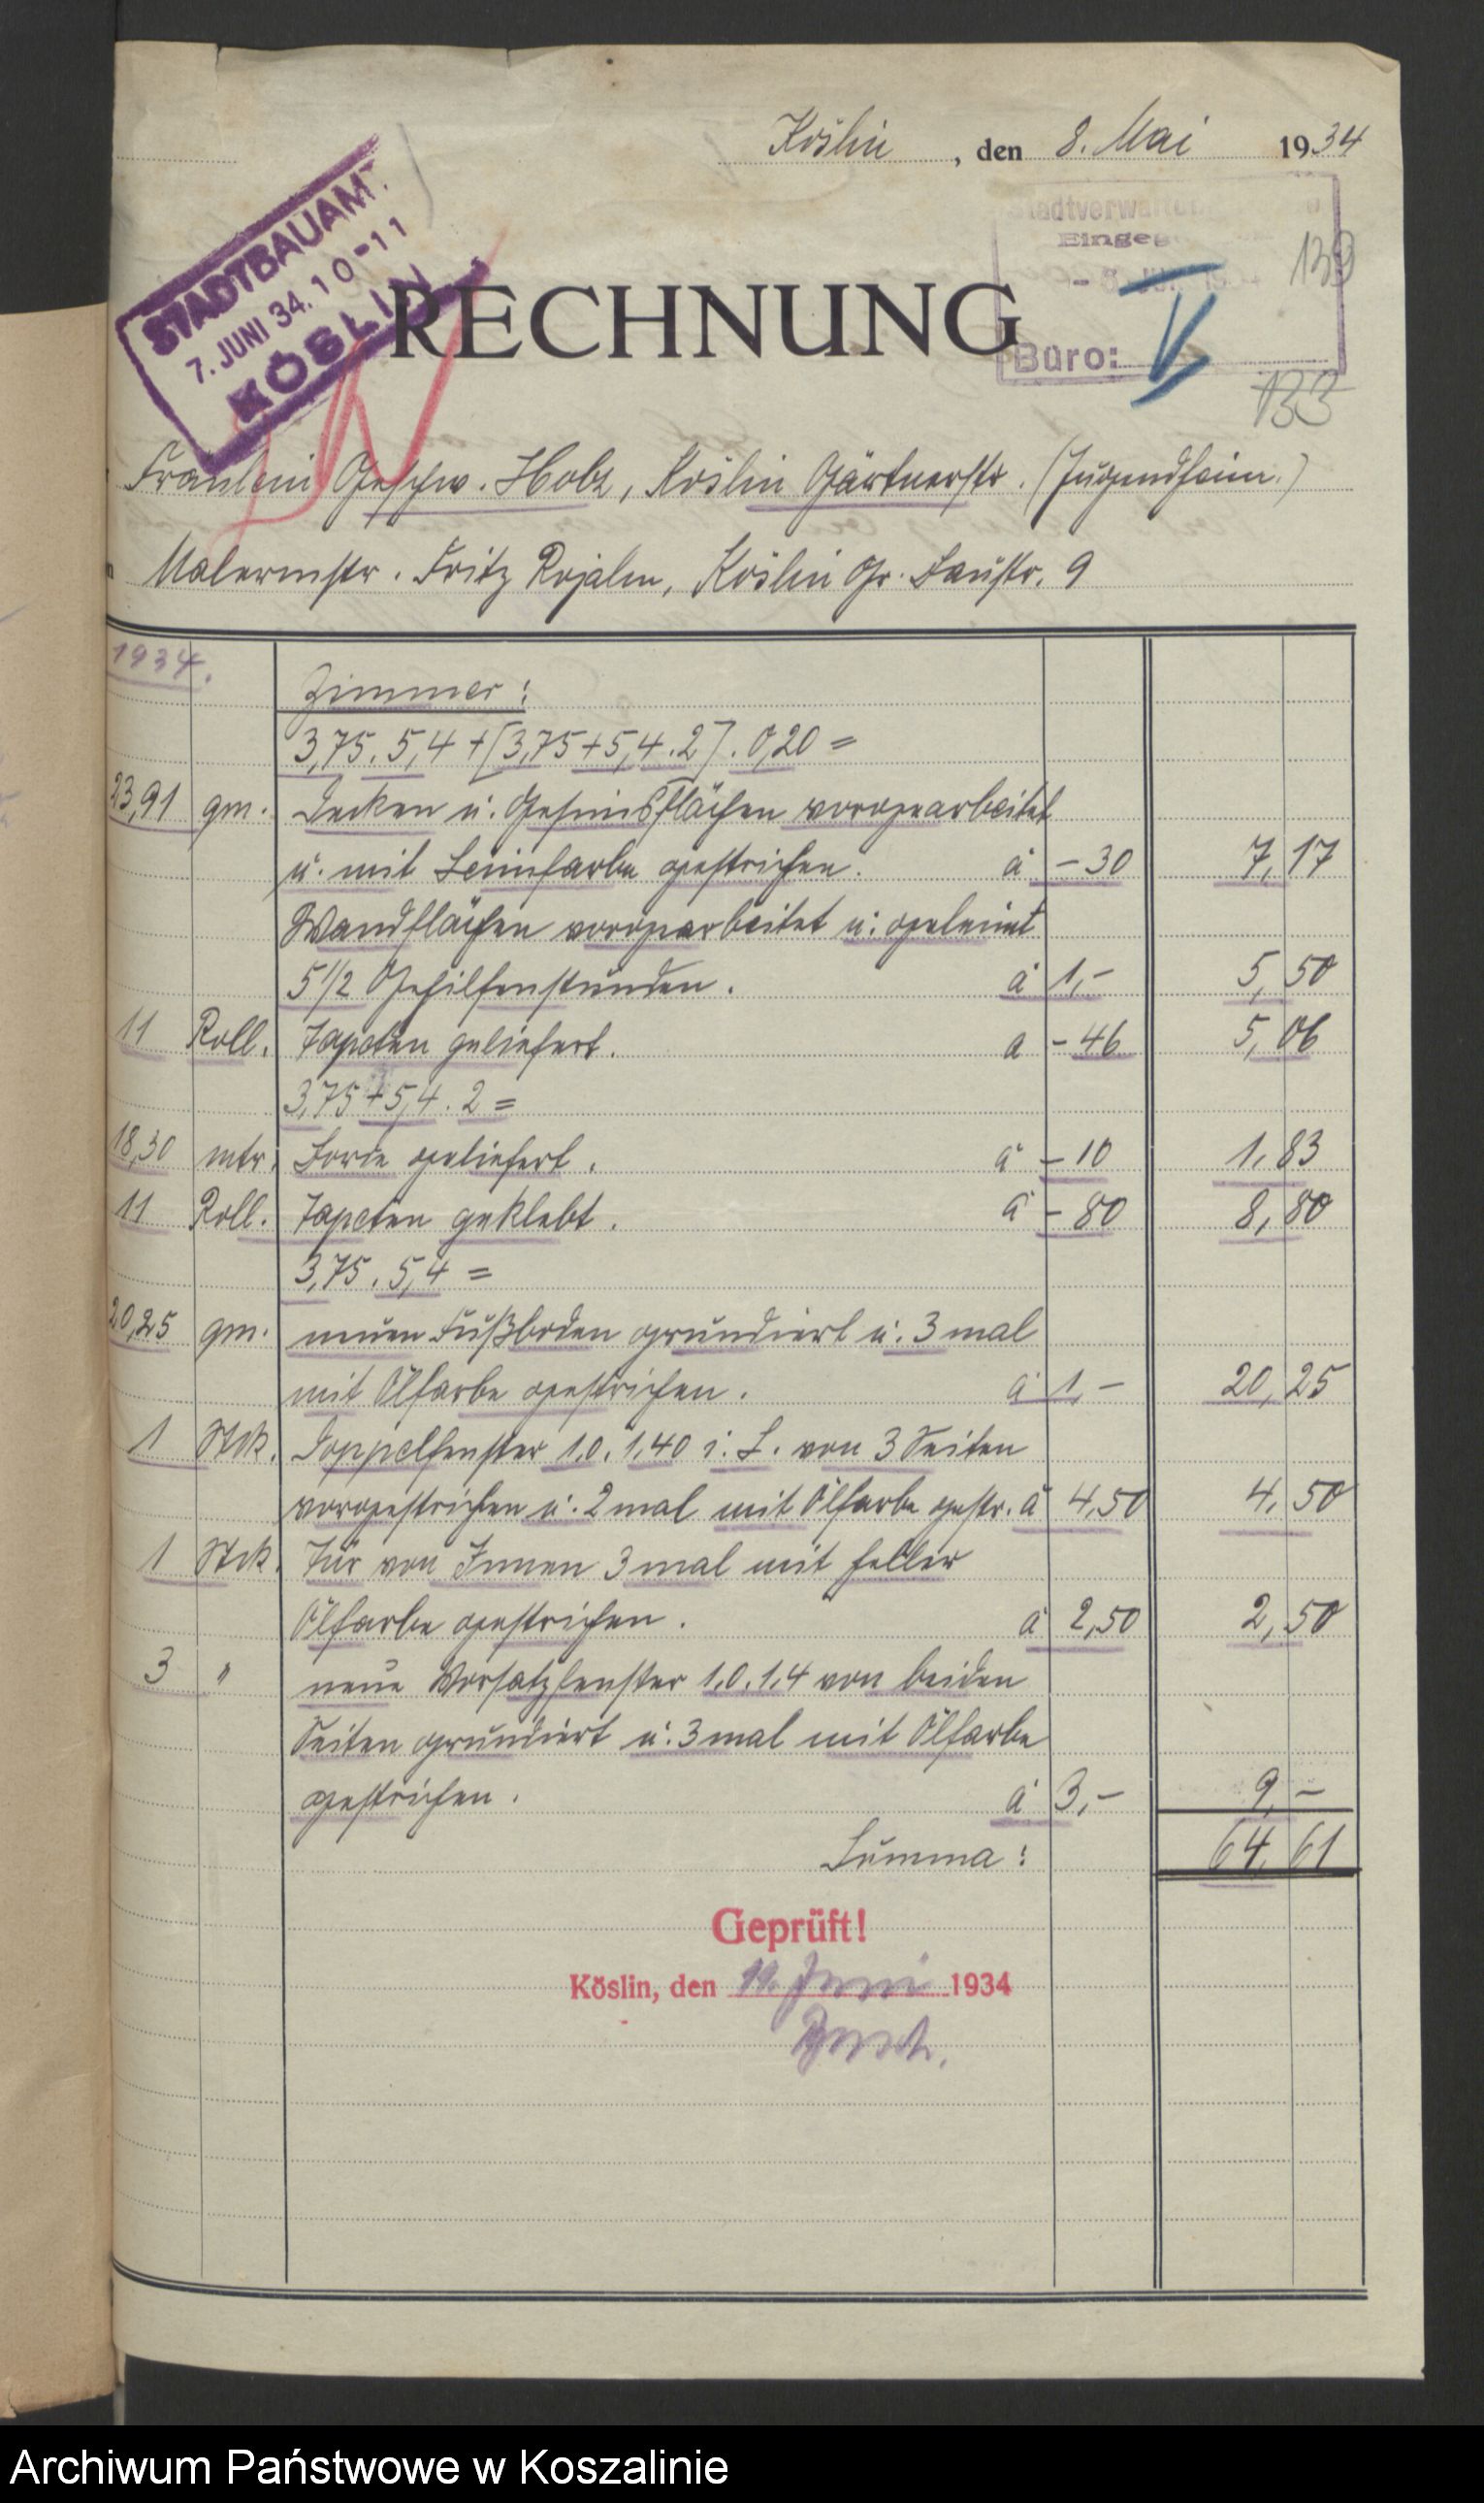 Köslin, den 8. Mai 1934
STADTBAUAMT.
7. JUNI 34. 10-11
KÖSLIN
Eingeg
139
RECHNUNG
Büro: V
133
Fräulein Geschw. Holz, Köslin Gärtnerstr. (Jugendheim.)
Malermstr. Fritz Rojahn, Köslin Gr. Baustr. 9
1934.
Zimmer:
3,75. 5,4 + [3,75+5,4.2]. 0,20 =
23,91 qm. Decken u. Gesimsflächen vorgearbeitet
u. mit Leimfarbe gestrichen. a -30 7,17
Wandflächen vorgearbeitet u. geleimt
5 1/2 Gehilfenstunden. a 1,- 5,50
11 Roll. Tapeten geliefert. a -46 5,06
3,75+5,4.2=
18,30 mtr. Borde geliefert. a -10 1,83
11 Roll. Tapeten geklebt. a -80 8,80
3,75. 5,4 =
20,25 qm. neuen Fußboden grundiert u. 3 mal
mit Ölfarbe gestrichen. a 1,- 20,25
1 Stck. Doppelfenster 1,0. 1,40 i. L. von 3 Seiten
vorgestrichen u. 2 mal mit Ölfarbe gestr. a 4,50 4,50
1 Stck. Tür von Innen 3 mal mit heller
Ölfarbe gestrichen. a 2,50 2,50
3 " neue Vorsatzfenster 1,0. 1,4 von beiden
Seiten grundiert u. 3 mal mit Ölfarbe
gestrichen. a 3,- 9,-
Summa: 64,61
Geprüft!
Köslin, den 11. Juni 1934
Archiwum Państwowe w Koszalinie